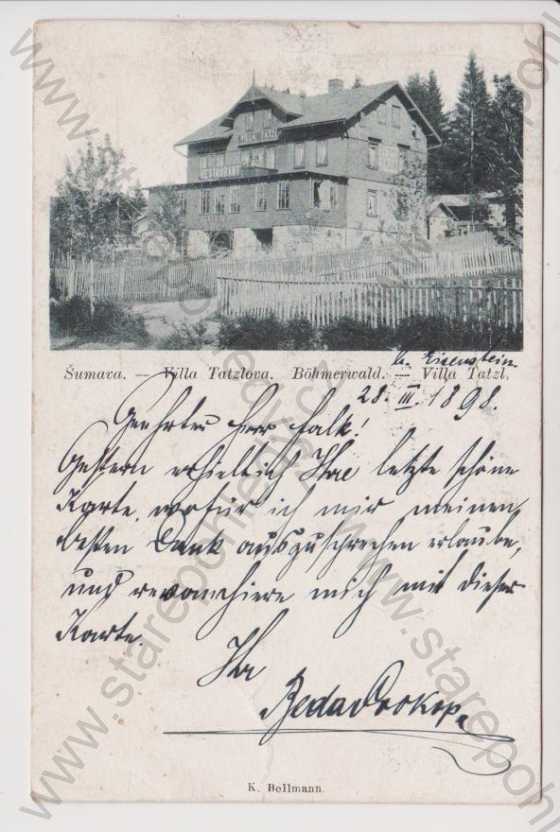 VILLA TATZL
RESTAURANT
Šumava. — Villa Tatzlova. Böhmerwald. — Villa Tatzl.
b. Eisenstein
28. III. 1898.
Geehrter Herr Falk!
Gestern erhielt ich Ihre letzte schöne
Karte, wofür ich mir meinen
besten Dank auszusprechen erlaube,
und revanchiere mich mit dieser
Karte.
Ihr
Beda Prokop
K. Bellmann.
www.starepohlednice.cz